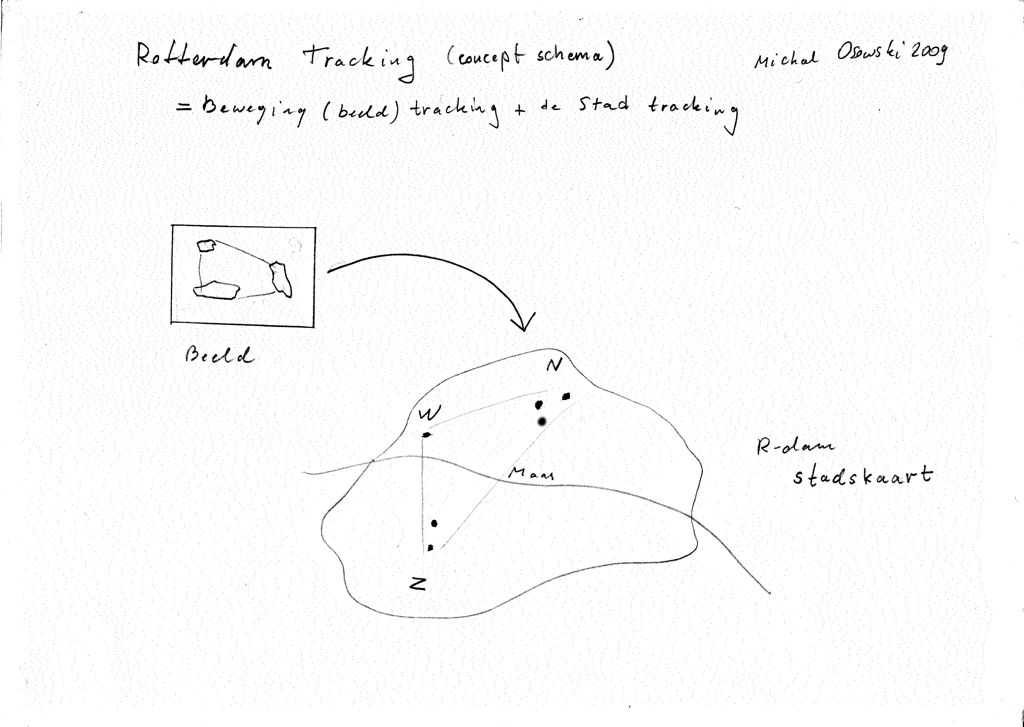 Rotterdam Tracking (concept schema)
Michal Osowski 2009
= Beweging (beeld) tracking + de Stad tracking
Beeld
N
W
Maas
R-dam
stadskaart
Z